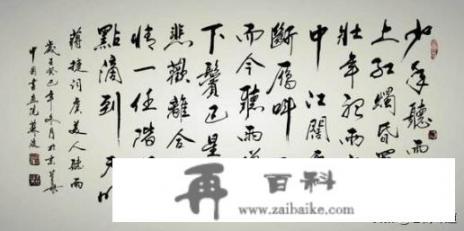 少年聽雨
上紅燭昏羅
壯年聽雨
中江闊
斷雁叫
而今聽雨僧
下鬢已星
悲歡離合
情一任階
點滴到天明
蔣捷詞虞美人聽雨
癸巳年秋月於京華
中國書画院
再百科
www.zaibaike.com